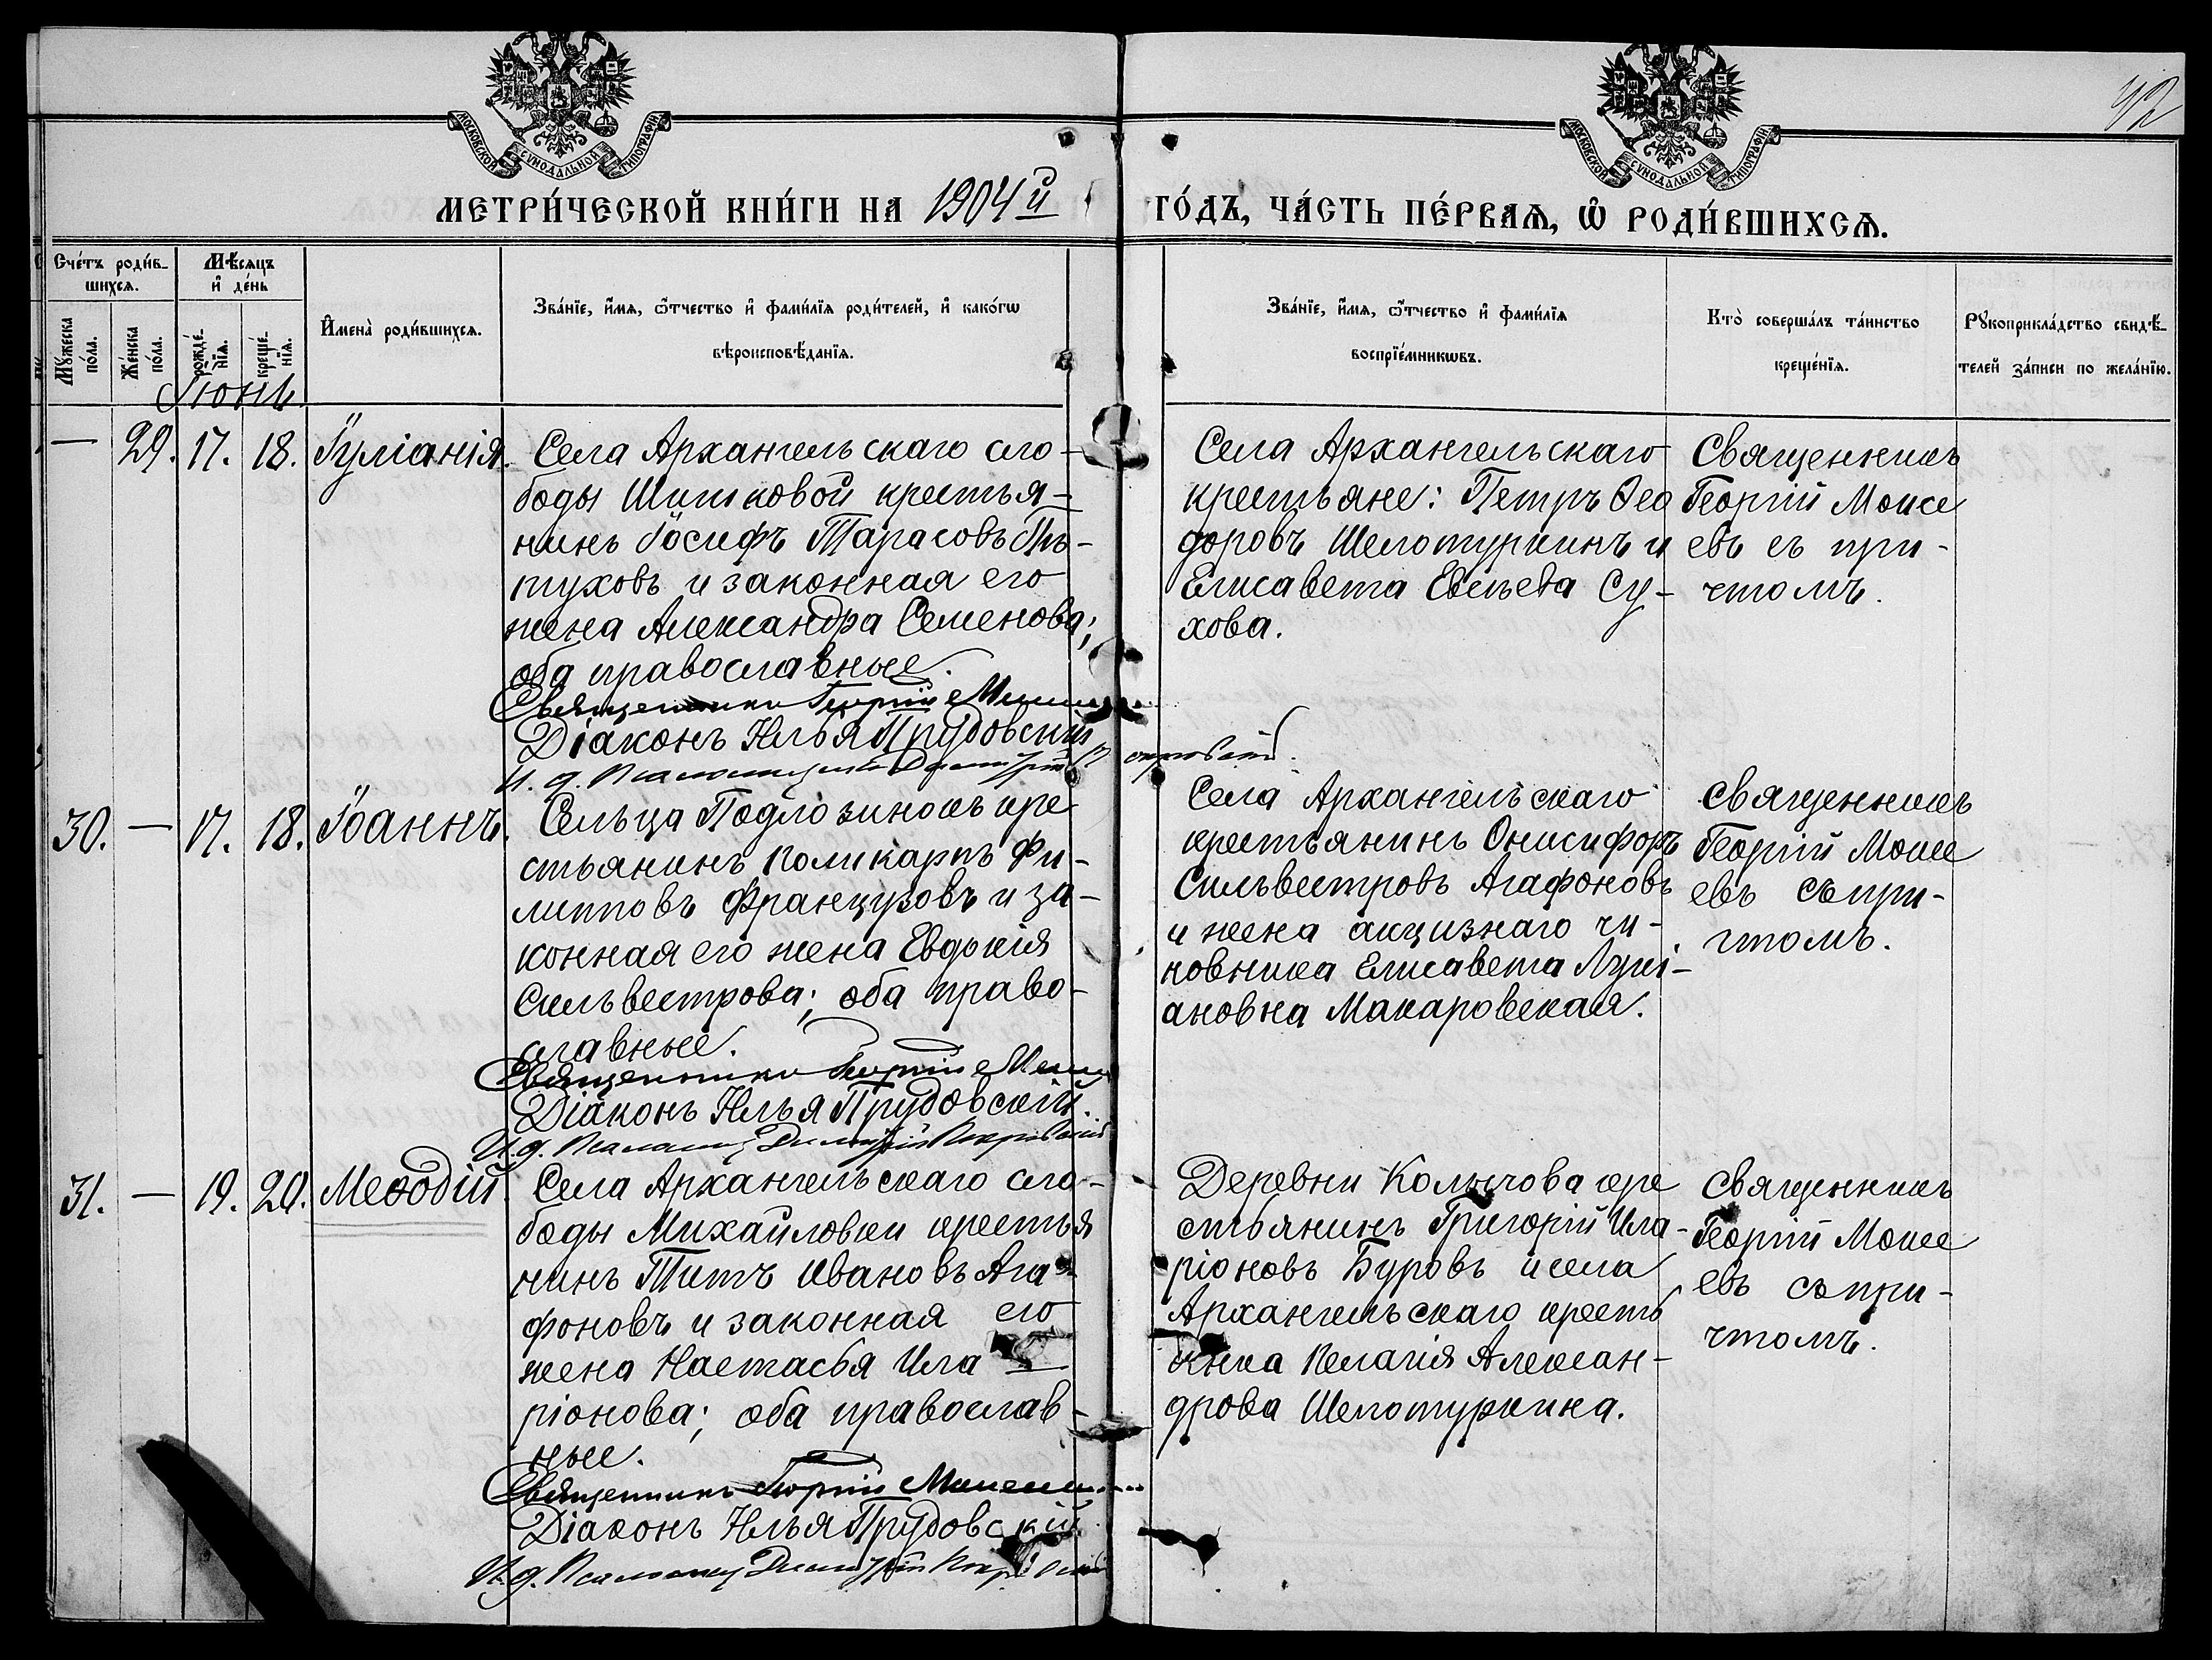 МОСКОВСКОЙ СѴНОДАЛЬНОЙ ТИПОГРАФІИ
МОСКОВСКОЙ СѴНОДАЛЬНОЙ ТИПОГРАФІИ
42
МЕТРИ́ЧЕСКОЙ КНИ́ГИ НА 1904й ГО́ДЪ, ЧА́СТЬ ПЕ́РВАѦ, Ѡ҆ РОДИ́ВШИХСѦ.
Счéтъ роди́в-
шихсѧ.
Мѣ́сѧцъ
и҆ де́нь
Мꙋ́жеска по́ла.
Же́нска по́ла.
рожде́-нїѧ.
креще́-нїѧ.
И҆мена̀ роди́вшихсѧ.
Зва́нїе, и҆́мѧ, ѻ҆́тчество и҆ фами́лїѧ роди́телей, и҆ како́гѡ
вѣроисповѣ́данїѧ.
Зва́нїе, и҆́мѧ, ѻ҆́тчество и҆ фами́лїѧ
воспрїе́мникѡвъ.
Кто̀ соверша́лъ та́инство
креще́нїѧ.
Рꙋкоприкла́дство свидѣ́-
телей за́писи по жела́нїю.
Іюнь
— 29. 17. 18. Іуліанія.
Села Архангельскаго сло-
боды Шишковой крестья-
нинъ Іосифъ Тарасовъ Пѣ-
туховъ и законная его
жена Александра Семенова;
оба православные.
Священникъ Георгій
Діаконъ Илья Прудовскій
И. д. Псаломщика Димитрій Покровскій.
Села Архангельскаго
крестьяне: Петръ Ѳео
доровъ Шелотуркинъ и
Елисавета Евсѣева Су-
хова.
Священникъ
Георгій Моисе
евъ съ при-
чтомъ.
30. — 17. 18. Іоаннъ.
Сельца Подлозинокъ кре
стьянинъ Поликарпъ Фи-
липповъ Французовъ и за-
конная его жена Евдокія
Сильвестрова; оба право-
славные.
Священникъ Георгій
Діаконъ Илья Прудовскій.
И. д. Псаломщ Димитрій Покровскій
Села Архангельскаго
крестьянинъ Онисифоръ
Сильвестровъ Агафоновъ
и жена акцизнаго чи-
новника Елисавета Лукі-
ановна Макаровская.
Священникъ
Георгій Моисе
евъ съ при-
чтомъ.
31. — 19. 20. Меѳодій.
Села Архангельскаго сло-
боды Михайловки крестья
нинъ Титъ Ивановъ Ага-
фоновъ и законная его
жена Настасья Ила
ріонова; оба православ-
ные.
Священникъ Георгій
Діаконъ Илья Прудовскій
И. д. Псаломщ Димитрій Покровскій
Деревни Колычова кре
стьянинъ Григорій Ила-
ріоновъ Буровъ и села
Архангельскаго кресть
янка Пелагія Алексан-
дрова Шелотуркина.
Священникъ
Георгій Моисе
евъ съ при-
чтомъ.